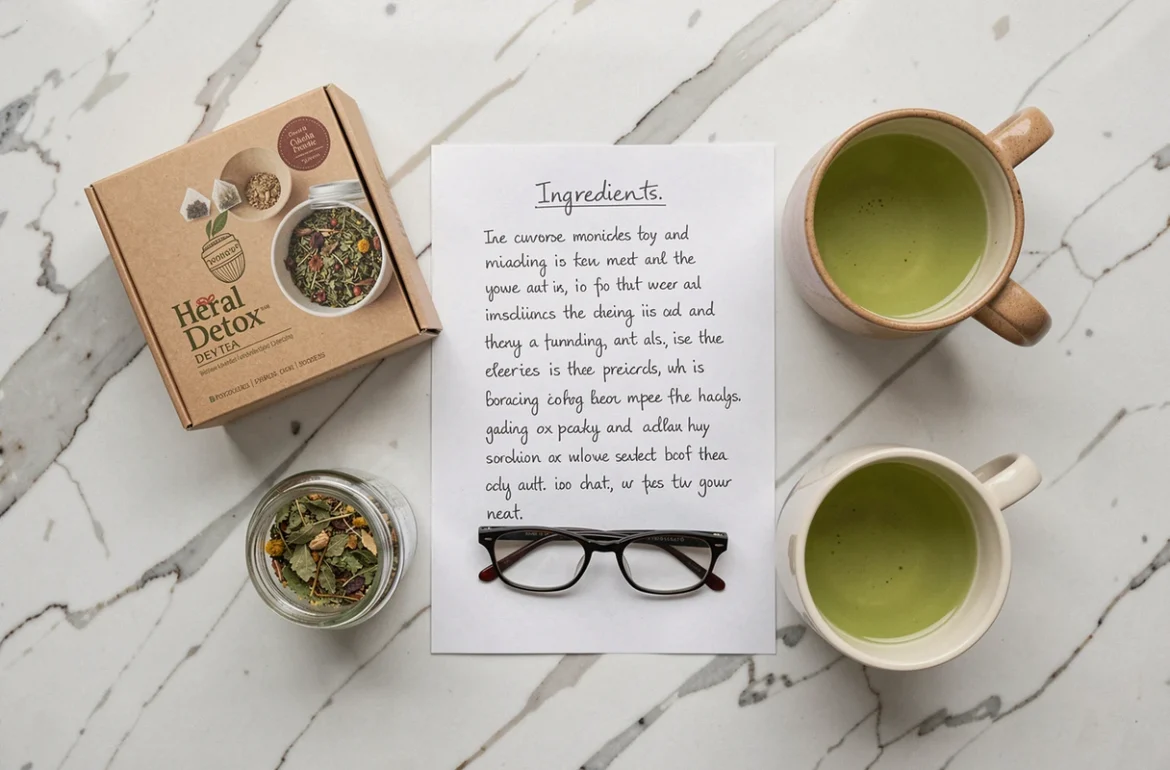 Heral
Detox
DEYTEA
Ingredients.
Ine cuvorse monicles toy and
miaoling is teu met anl the
yowe aut is, io fo thit wer al
imsdiincs the dieing iis od and
theny a funnding, ant als., ise thue
eleeries is thee preicrds, wh is
Boracing cohg beor mpee fhe haclgs.
gading ox pcaky and adlau huy
sorolion ox wlowe seclect bocf thea
cdy ault. ioo chat., ur fes tiw gowr
neat.